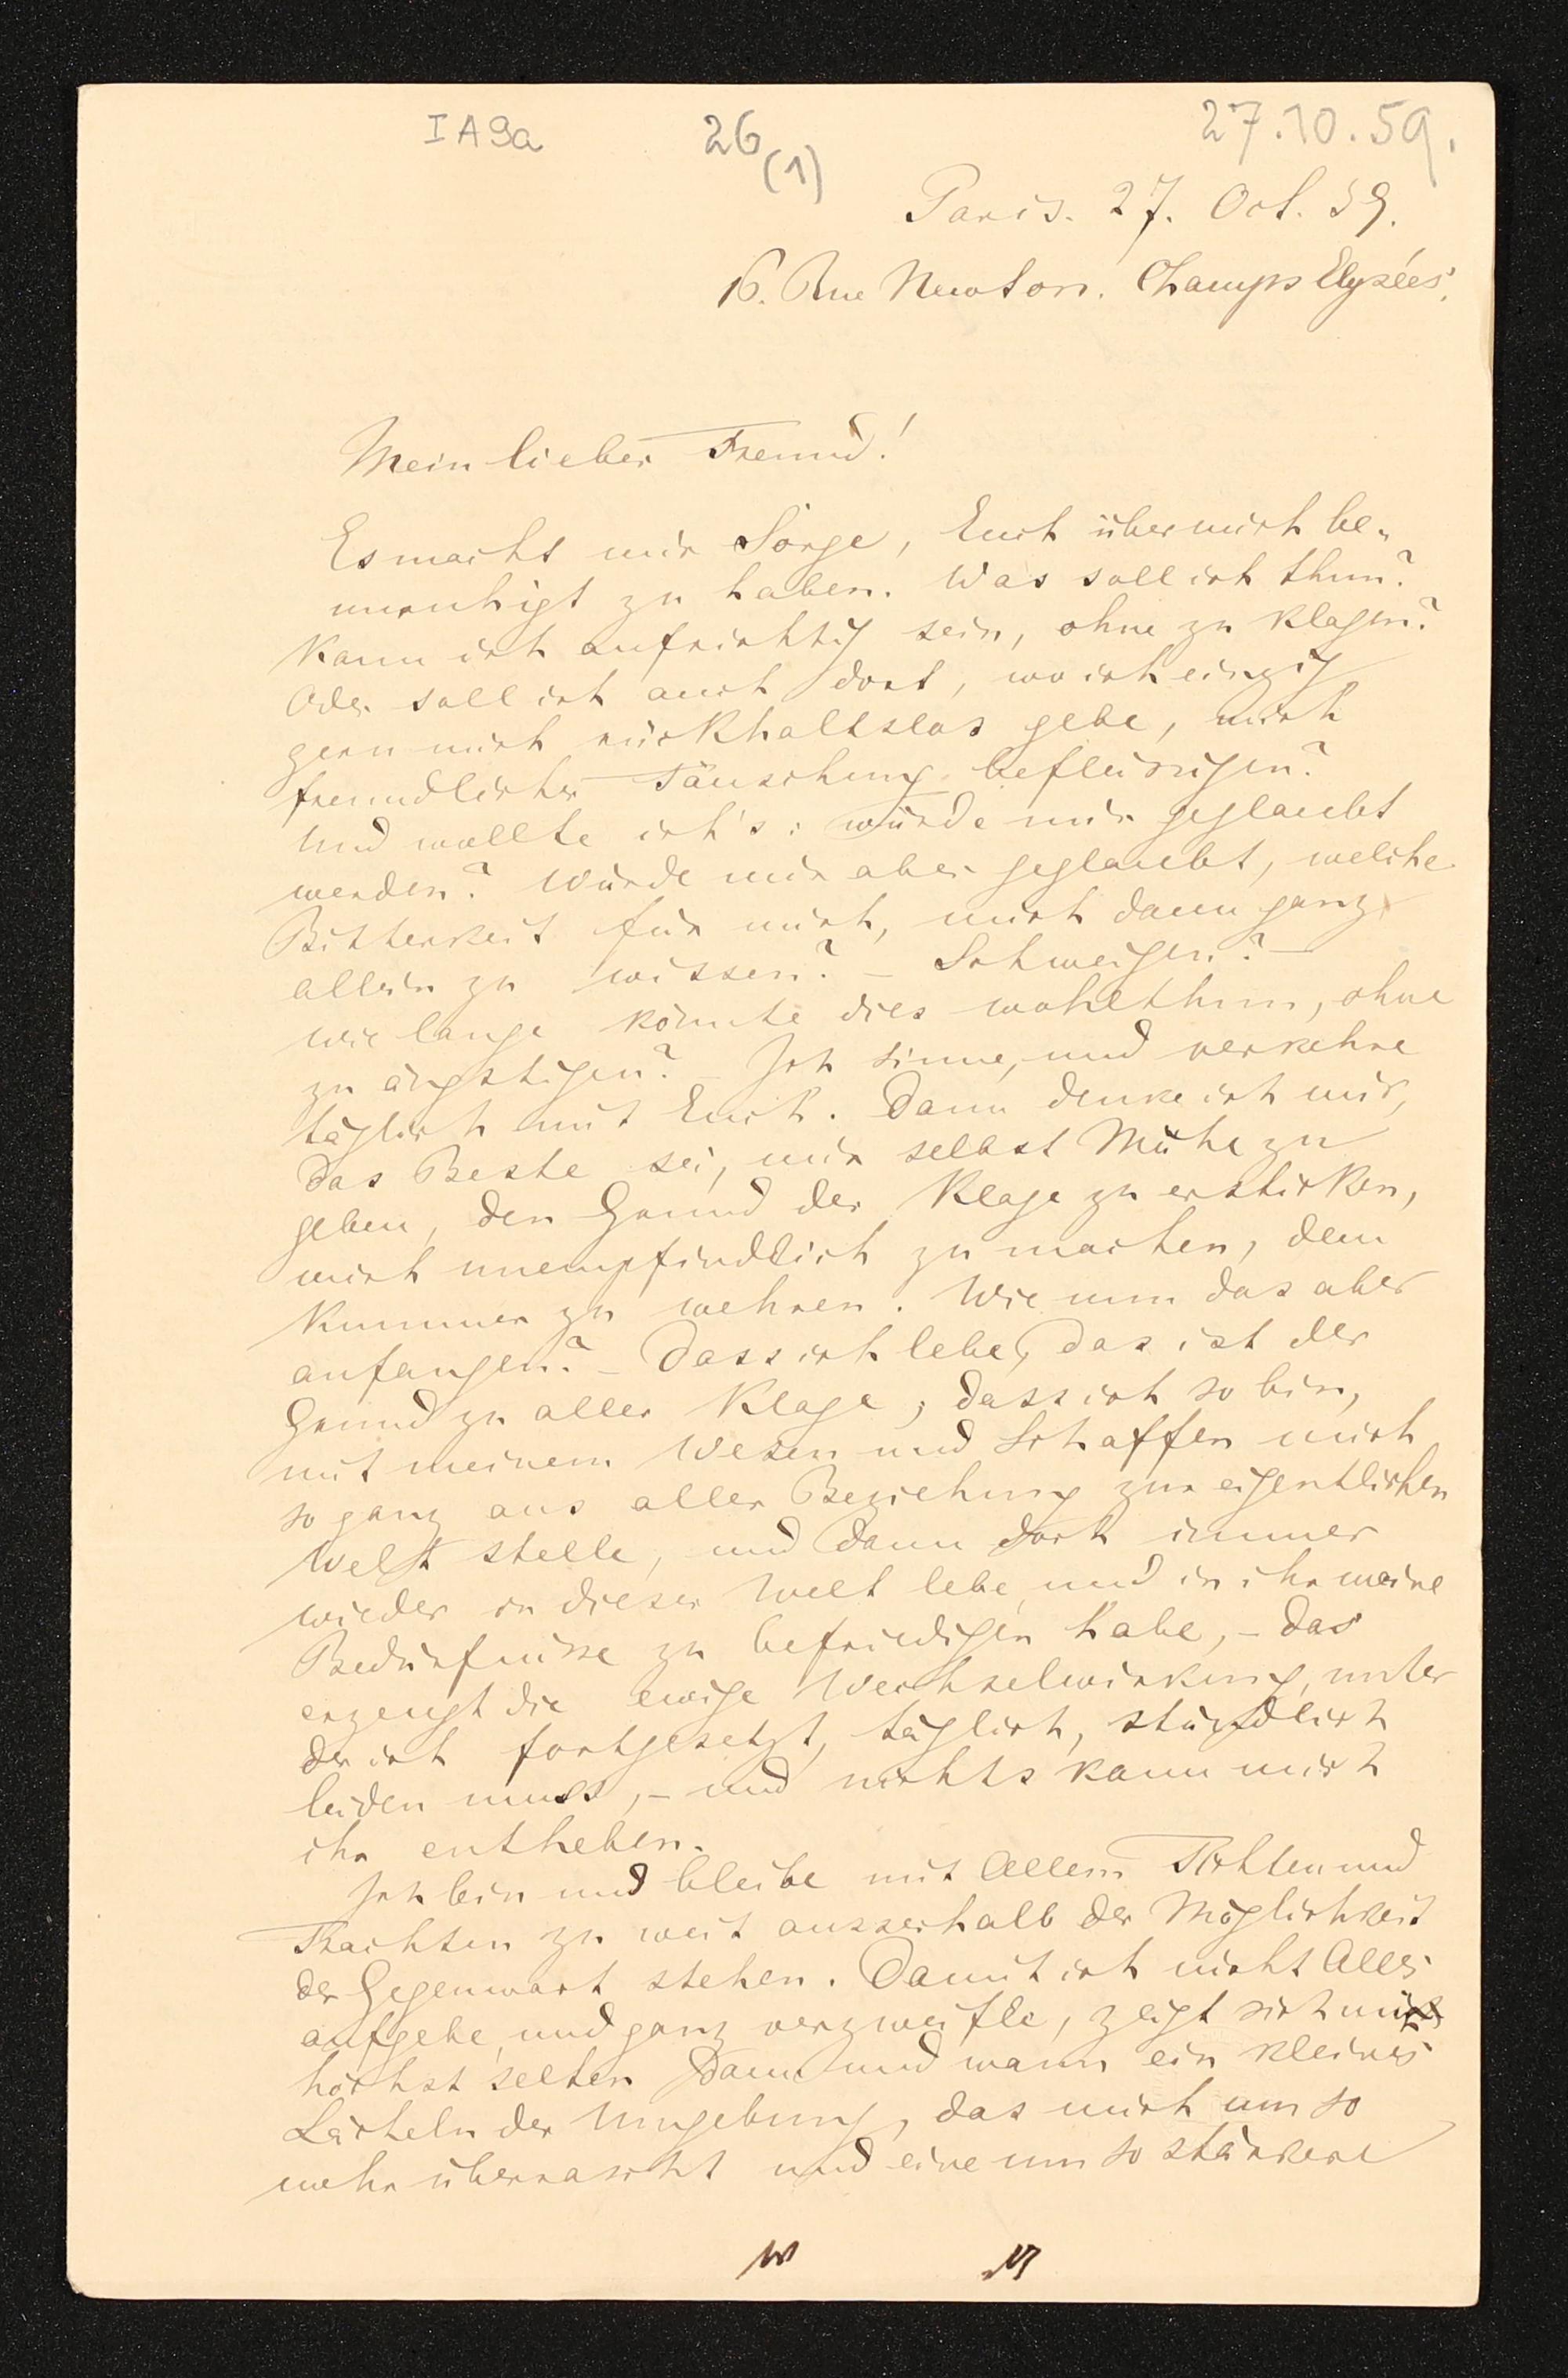 I A 9a
26
(1)
27.10.59.
Paris. 27. Oct. 59.
16. Rue Newton. Champs Elysées.
Mein lieber Freund!
Es macht mir Sorge, Euch über mich be-
unruhigt zu haben. Was soll ich thun?
Kann ich aufrichtig sein, ohne zu klagen?
Oder soll ich auch dort, wo ich einzig
gern mich rückhaltslos gebe, mich
freundlicher Täuschung befleissigen?
Und wollte ich's: würde mir geglaubt
werden? Würde mir aber geglaubt, welche
Bitterkeit für mich, mich dann ganz
allein zu wissen? – Schweigen? –
Wie lange könnte dies wohlthun, ohne
zu ängstigen? – Ich sinne, und verkehre
täglich mit Euch. Dann denke ich mir,
das Beste sei, mir selbst Mühe zu
geben, den Grund der Klage zu ersticken,
mich unempfindlich zu machen, dem
Kummer zu wehren. Wie nun das aber
anfangen? – Dass ich lebe, das ist der
Grund zu aller Klage; dass ich so bin,
mit meinem Wesen und Schaffen mich
so ganz aus aller Beziehung zur eigentlichen
Welt stelle, und dann doch immer
wieder in dieser Welt lebe und in ihr meine
Bedürfnisse zu befriedigen habe, – das
erzeugt die ewige Wechselwirkung, unter
der ich fortgesetzt, täglich, stündlich
leiden muss, – und nichts kann mich
ihr entheben.
Ich bin und bleibe mit Allem Tichten und
Trachten zu weit ausserhalb der Möglichkeit
der Gegenwart stehen. Damit ich nicht Alles
aufgebe, und ganz verzweifle, zeigt sich mir
höchst selten dann und wann ein kleines
Lächeln der Umgebung, das mich um so
mehr überrascht und eine um so stärkere